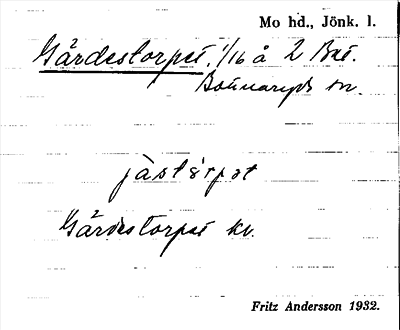 Mo hd., Jönk. l.
Gärdestorpet, 1/16 å 2 Bat.
Bottnaryds sn.
jàstårpət
Gärdestorpet kv.
Fritz Andersson 1932.